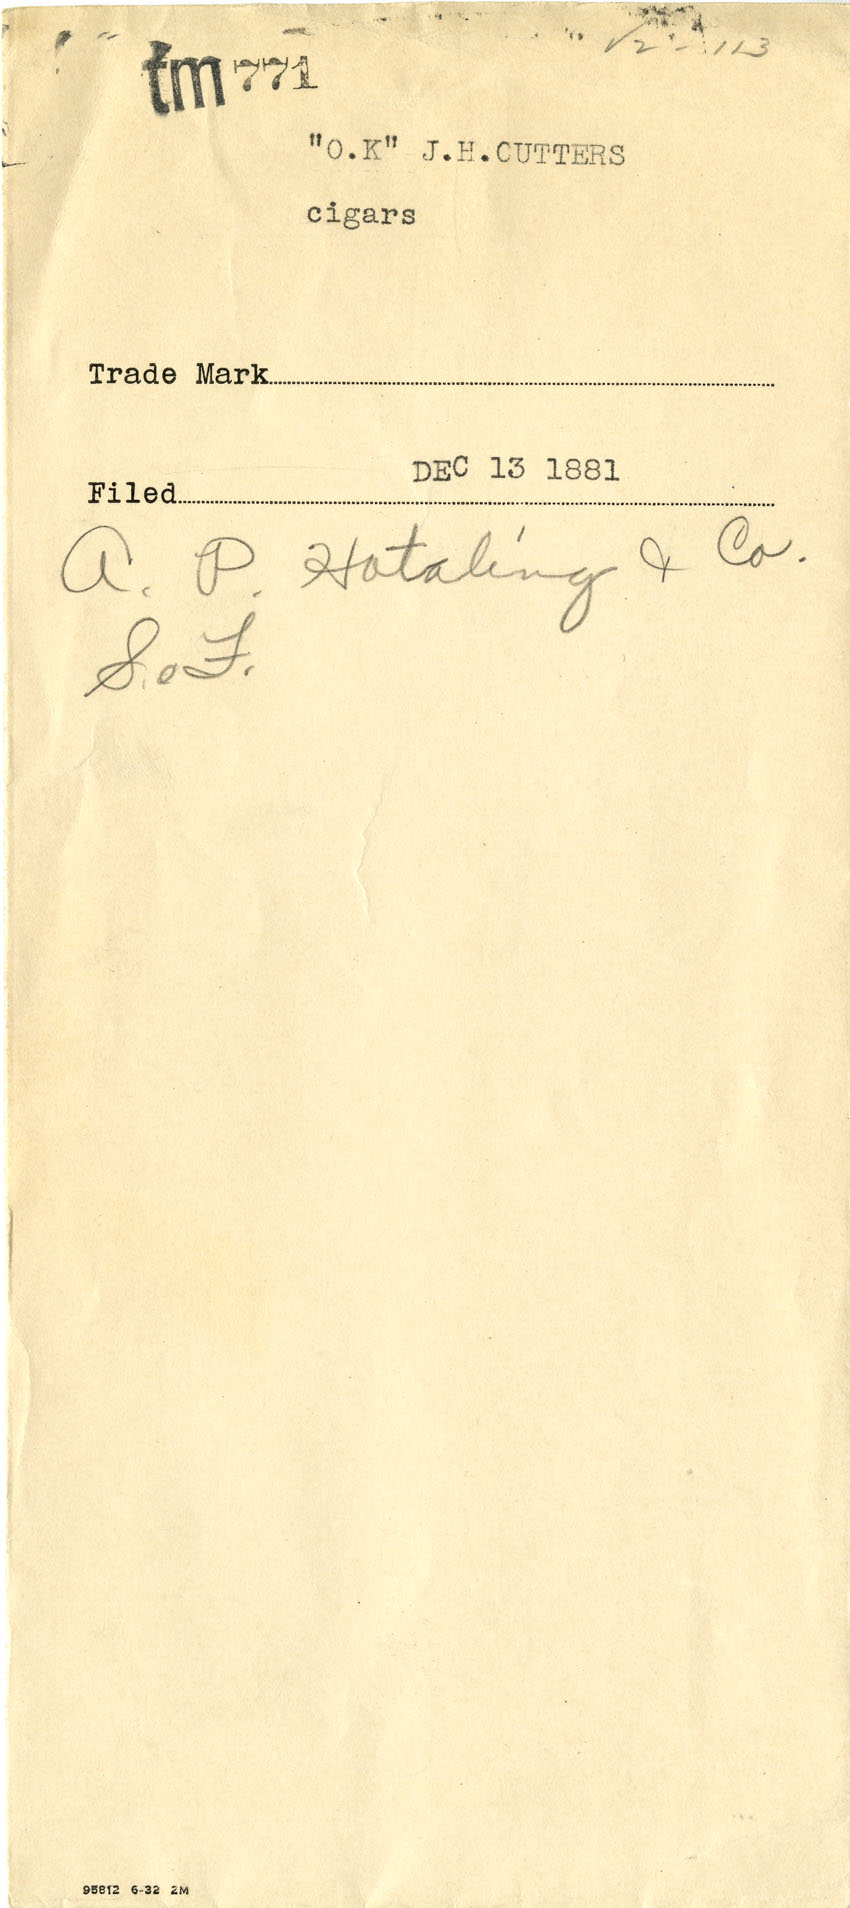 V2-113
tm 771
"O.K" J.H.CUTTERS
cigars
Trade Mark
DEC 13 1881
Filed
A. P. Hotaling & Co.
S.F.
95812 6-32 2M